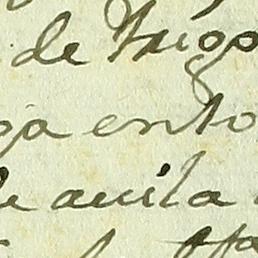 de Trigo
ga en to
de auila